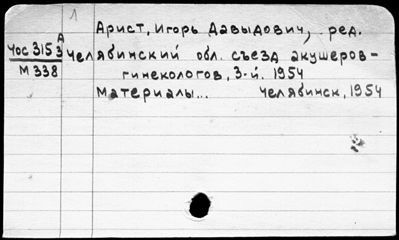 1
Арист, Игорь Давыдович, ред.
А
Чос 3153
Челябинский обл. съезд акушеров-
М338
гинекологов, 3-й. 1954
Материалы... Челябинск, 1954